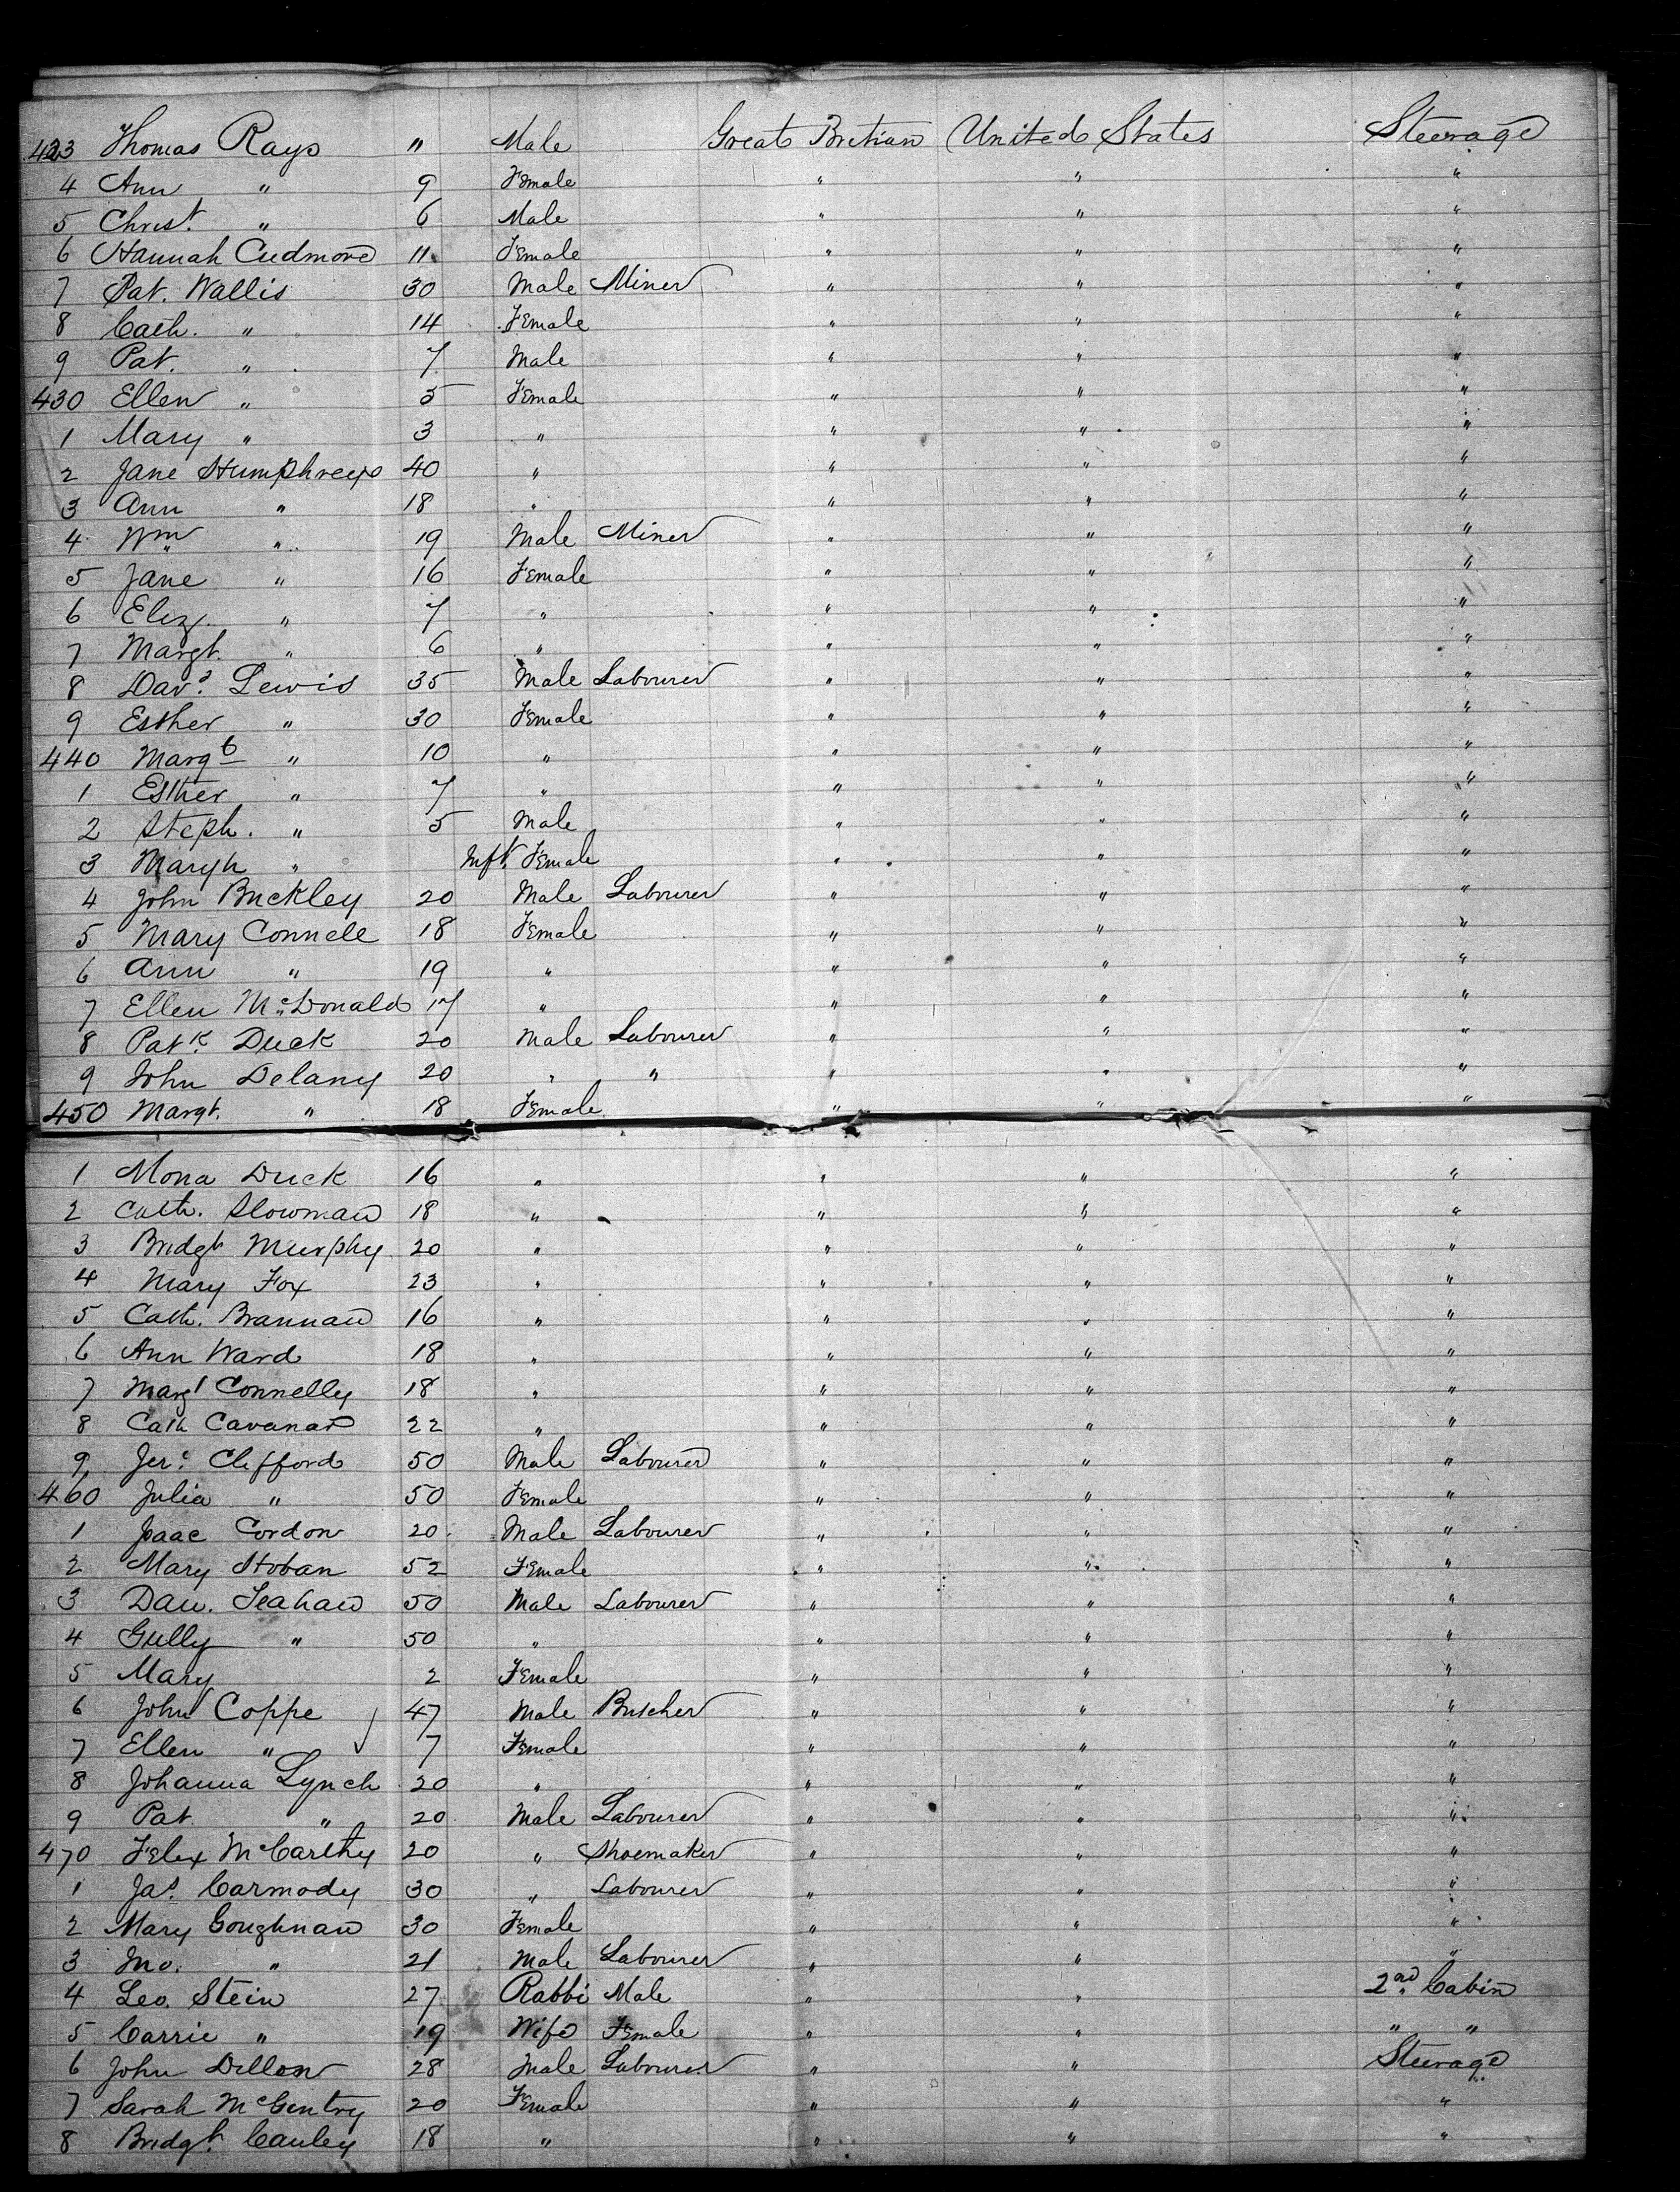 423 Thomas Rays " Male Great Bretian United States Steerage
4 Ann " 9 Female " " "
5 Christ. " 6 Male " " "
6 Hannah Cudmore 11 Female " " "
7 Pat. Wallis 30 Male Miner " " "
8 Cath. " 14 Female " " "
9 Pat. " 7 Male " " "
430 Ellen " 5 Female " " "
1 Mary " 3 " " " "
2 Jane Humphreys 40 " " " "
3 Ann " 18 " " " "
4 Wm " 19 Male Miner " " "
5 Jane " 16 Female " " "
6 Eliz. " 7 " " " "
7 Margt. " 6 " " " "
8 Davd. Lewis 35 Male Labourer " " "
9 Esther " 30 Female " " "
440 Margt " 10 " " " "
1 Esther " 7 " " " "
2 Steph. " 5 Male " " "
3 " Inft. Female " " "
4 John Buckley 20 Male Labourer " " "
5 Mary Connell 18 Female " " "
6 Ann " 19 " " " "
7 Ellen McDonald 17 " " " "
8 Patk. Duck 20 Male Labourer " " "
9 John Delany 20 " " " " "
450 Margt. " 18 Female " " "
1 Mona Duck 16 " " " "
2 Cath. Slowman 18 " " " "
3 Bridgt Murphy 20 " " " "
4 Mary Fox 23 " " " "
5 Cath. Brannan 16 " " " "
6 Ann Ward 18 " " " "
7 Margt Connelly 18 " " " "
8 Cath Cavanar 22 " " " "
9 Jere. Clifford 50 Male Labourer " " "
460 Julia " 50 Female " " "
1 Isaac Cordon 20 Male Labourer " " "
2 Mary Hoban 52 Female " " "
3 Dan. Leahaw 50 Male Labourer " " "
4 Gully " 50 " " " "
5 Mary 2 Female " " "
6 John Coppe 47 Male Butcher " " "
7 Ellen " 7 Female " " "
8 Johanna Lynch 20 " " " "
9 Pat " 20 Male Labourer " " "
470 Felex McCarthy 20 " Shoemaker " " "
1 Jas. Carmody 30 " Labourer " " "
2 Mary Goughnan 30 Female " " "
3 Jno. " 21 Male Labourer " " "
4 Leo. Stein 27 Rabbi Male " " 2nd Cabin
5 Carrie " 19 Wife Female " " " "
6 John Dillon 28 Male Labourer " " Steerage
7 Sarah McGentry 20 Female " " "
8 Bridgt. Cauley 18 " " " "